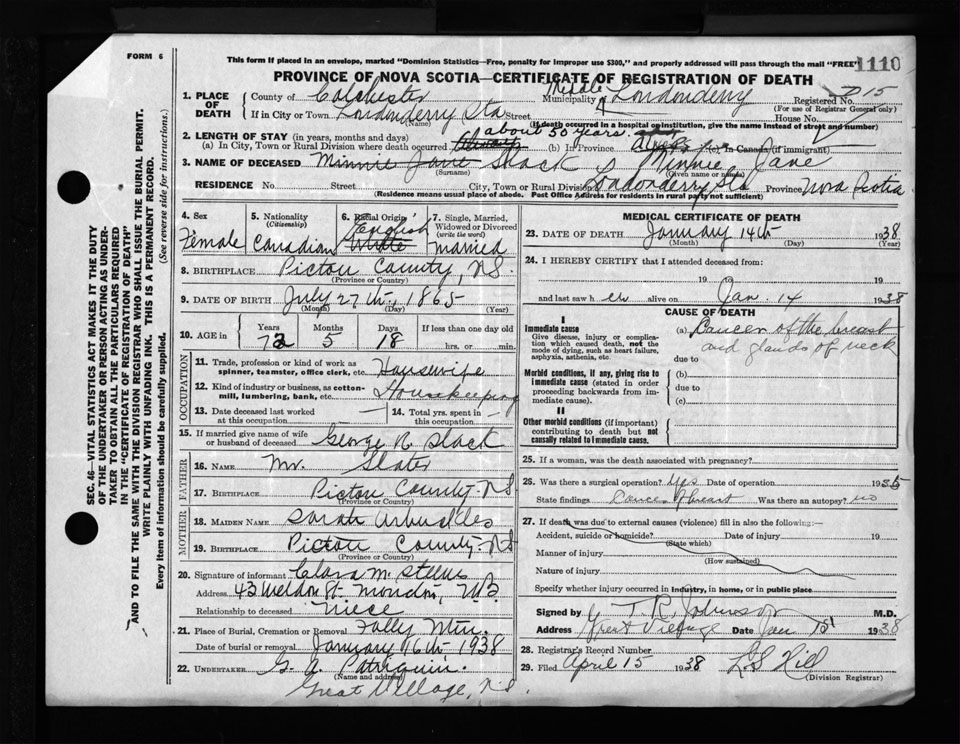 FORM 6
This form if placed in an envelope, marked "Dominion Statistics—Free, penalty for improper use $300," and properly addressed will pass through the mail "FREE"
1110
PROVINCE OF NOVA SCOTIA—CERTIFICATE OF REGISTRATION OF DEATH
1. PLACE OF DEATH
County of Colchester Municipality Middle Londonderry Registered No. D15
(For use of Registrar General only)
If in City or Town Londonderry Sta Street House No.
(Name) (If death occurred in a hospital or institution, give the name instead of street and number)
2. LENGTH OF STAY (in years, months and days)
(a) In City, Town or Rural Division where death occurred about 50 years. (b) In Province always (c) In Canada (if immigrant) —
3. NAME OF DECEASED Minnie Jane Slack Minnie Jane
(Surname) (Given name or names)
RESIDENCE No. Street City, Town or Rural Division Londonderry Sta Province Nova Scotia
(Residence means usual place of abode. Post Office Address for residents in rural part not sufficient)
4. Sex Female
5. Nationality (Citizenship) Canadian
6. Racial Origin English White
7. Single, Married, Widowed or Divorced (write the word) married
8. BIRTHPLACE Pictou County, N.S.
(Province or Country)
9. DATE OF BIRTH July 27th, 1865
(Month) (Day) (Year)
10. AGE in Years 72 Months 5 Days 18 If less than one day old hrs. or min.
OCCUPATION
11. Trade, profession or kind of work as spinner, teamster, office clerk, etc. Housewife
12. Kind of industry or business, as cotton-mill, lumbering, bank, etc. Housekeeping
13. Date deceased last worked at this occupation — 14. Total yrs. spent in this occupation —
15. If married give name of wife or husband of deceased George R Slack
FATHER
16. NAME Mr. Slater
17. BIRTHPLACE Pictou County N.S.
(Province or Country)
MOTHER
18. MAIDEN NAME Sarah Arbuckles
19. BIRTHPLACE Pictou County N.S.
(Province or Country)
20. Signature of informant Clara M. Steeves
Address 43 Weldon St. Moncton, N.B.
Relationship to deceased Niece
21. Place of Burial, Cremation or Removal Folly Mtn.
Date of burial or removal January 16th 1938
22. UNDERTAKER G. A. Patriquin
(Name and address)
Great Village, N.S.
MEDICAL CERTIFICATE OF DEATH
23. DATE OF DEATH January 14th 1938
(Month) (Day) (Year)
24. I HEREBY CERTIFY that I attended deceased from:
19 to 19
and last saw her alive on Jan. 14 1938
CAUSE OF DEATH
I
Immediate cause
Give disease, injury or complication which caused death, not the mode of dying, such as heart failure, asphyxia, asthenia, etc.
(a) Cancer of the breast
and glands of neck
due to
Morbid conditions, if any, giving rise to immediate cause (stated in order proceeding backwards from immediate cause).
(b)
due to
(c)
II
Other morbid conditions (if important) contributing to death but not causally related to immediate cause.
25. If a woman, was the death associated with pregnancy?
26. Was there a surgical operation? yes Date of operation 1935
State findings Cancer of breast Was there an autopsy? no
27. If death was due to external causes (violence) fill in also the following:—
Accident, suicide or homicide? Date of injury 19
(State which)
Manner of injury
(How sustained)
Nature of injury
Specify whether injury occurred in industry, in home, or in public place
Signed by T. R. Johnson M.D.
Address Great Village Date Jan 15 1938
28. Registrar's Record Number
29. Filed April 15 1938 L S Hill
(Division Registrar)
SEC. 46—VITAL STATISTICS ACT MAKES IT THE DUTY
OF THE UNDERTAKER OR PERSON ACTING AS UNDERTAKER
TO OBTAIN ALL THE PARTICULARS REQUIRED
IN THE "CERTIFICATE OF REGISTRATION OF DEATH"
AND TO FILE THE SAME WITH THE DIVISION REGISTRAR WHO SHALL ISSUE THE BURIAL PERMIT.
WRITE PLAINLY WITH UNFADING INK. THIS IS A PERMANENT RECORD.
Every item of information should be carefully supplied. (See reverse side for instructions.)